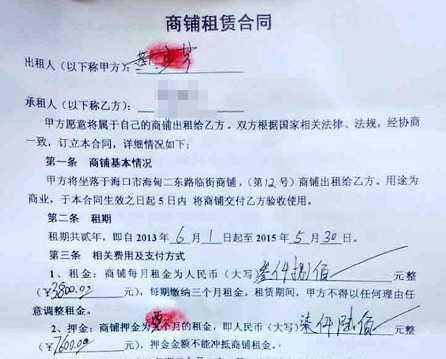 商铺租赁合同
出租人（以下称甲方）：
承租人（以下称乙方）：
甲方愿意将属于自己的商铺出租给乙方。双方根据国家相关法律、法规，经协商
一致，订立本合同，详细情况如下：
第一条 商铺基本情况
甲方将坐落于海口市海甸二东路临街商铺，（第12号）商铺出租给乙方。用途为
商业，于本合同生效之日起5日内 将商铺交付乙方验收使用。
第二条 租期
租期共贰年，即自2013年6月1日起至2015年5月30日。
第三条 相关费用及支付方式
1、租金：商铺每月租金为人民币（大写）叁仟捌佰 元整
（￥3800.00 元），每期缴纳三个月租金。租赁期间，甲方不得以任何理由任
意调整租金。
2、押金：商铺押金为两个月的租金，即人民币（大写）柒仟陆佰 元整
（￥7600.00 元），押金金额不能冲抵商铺租金。